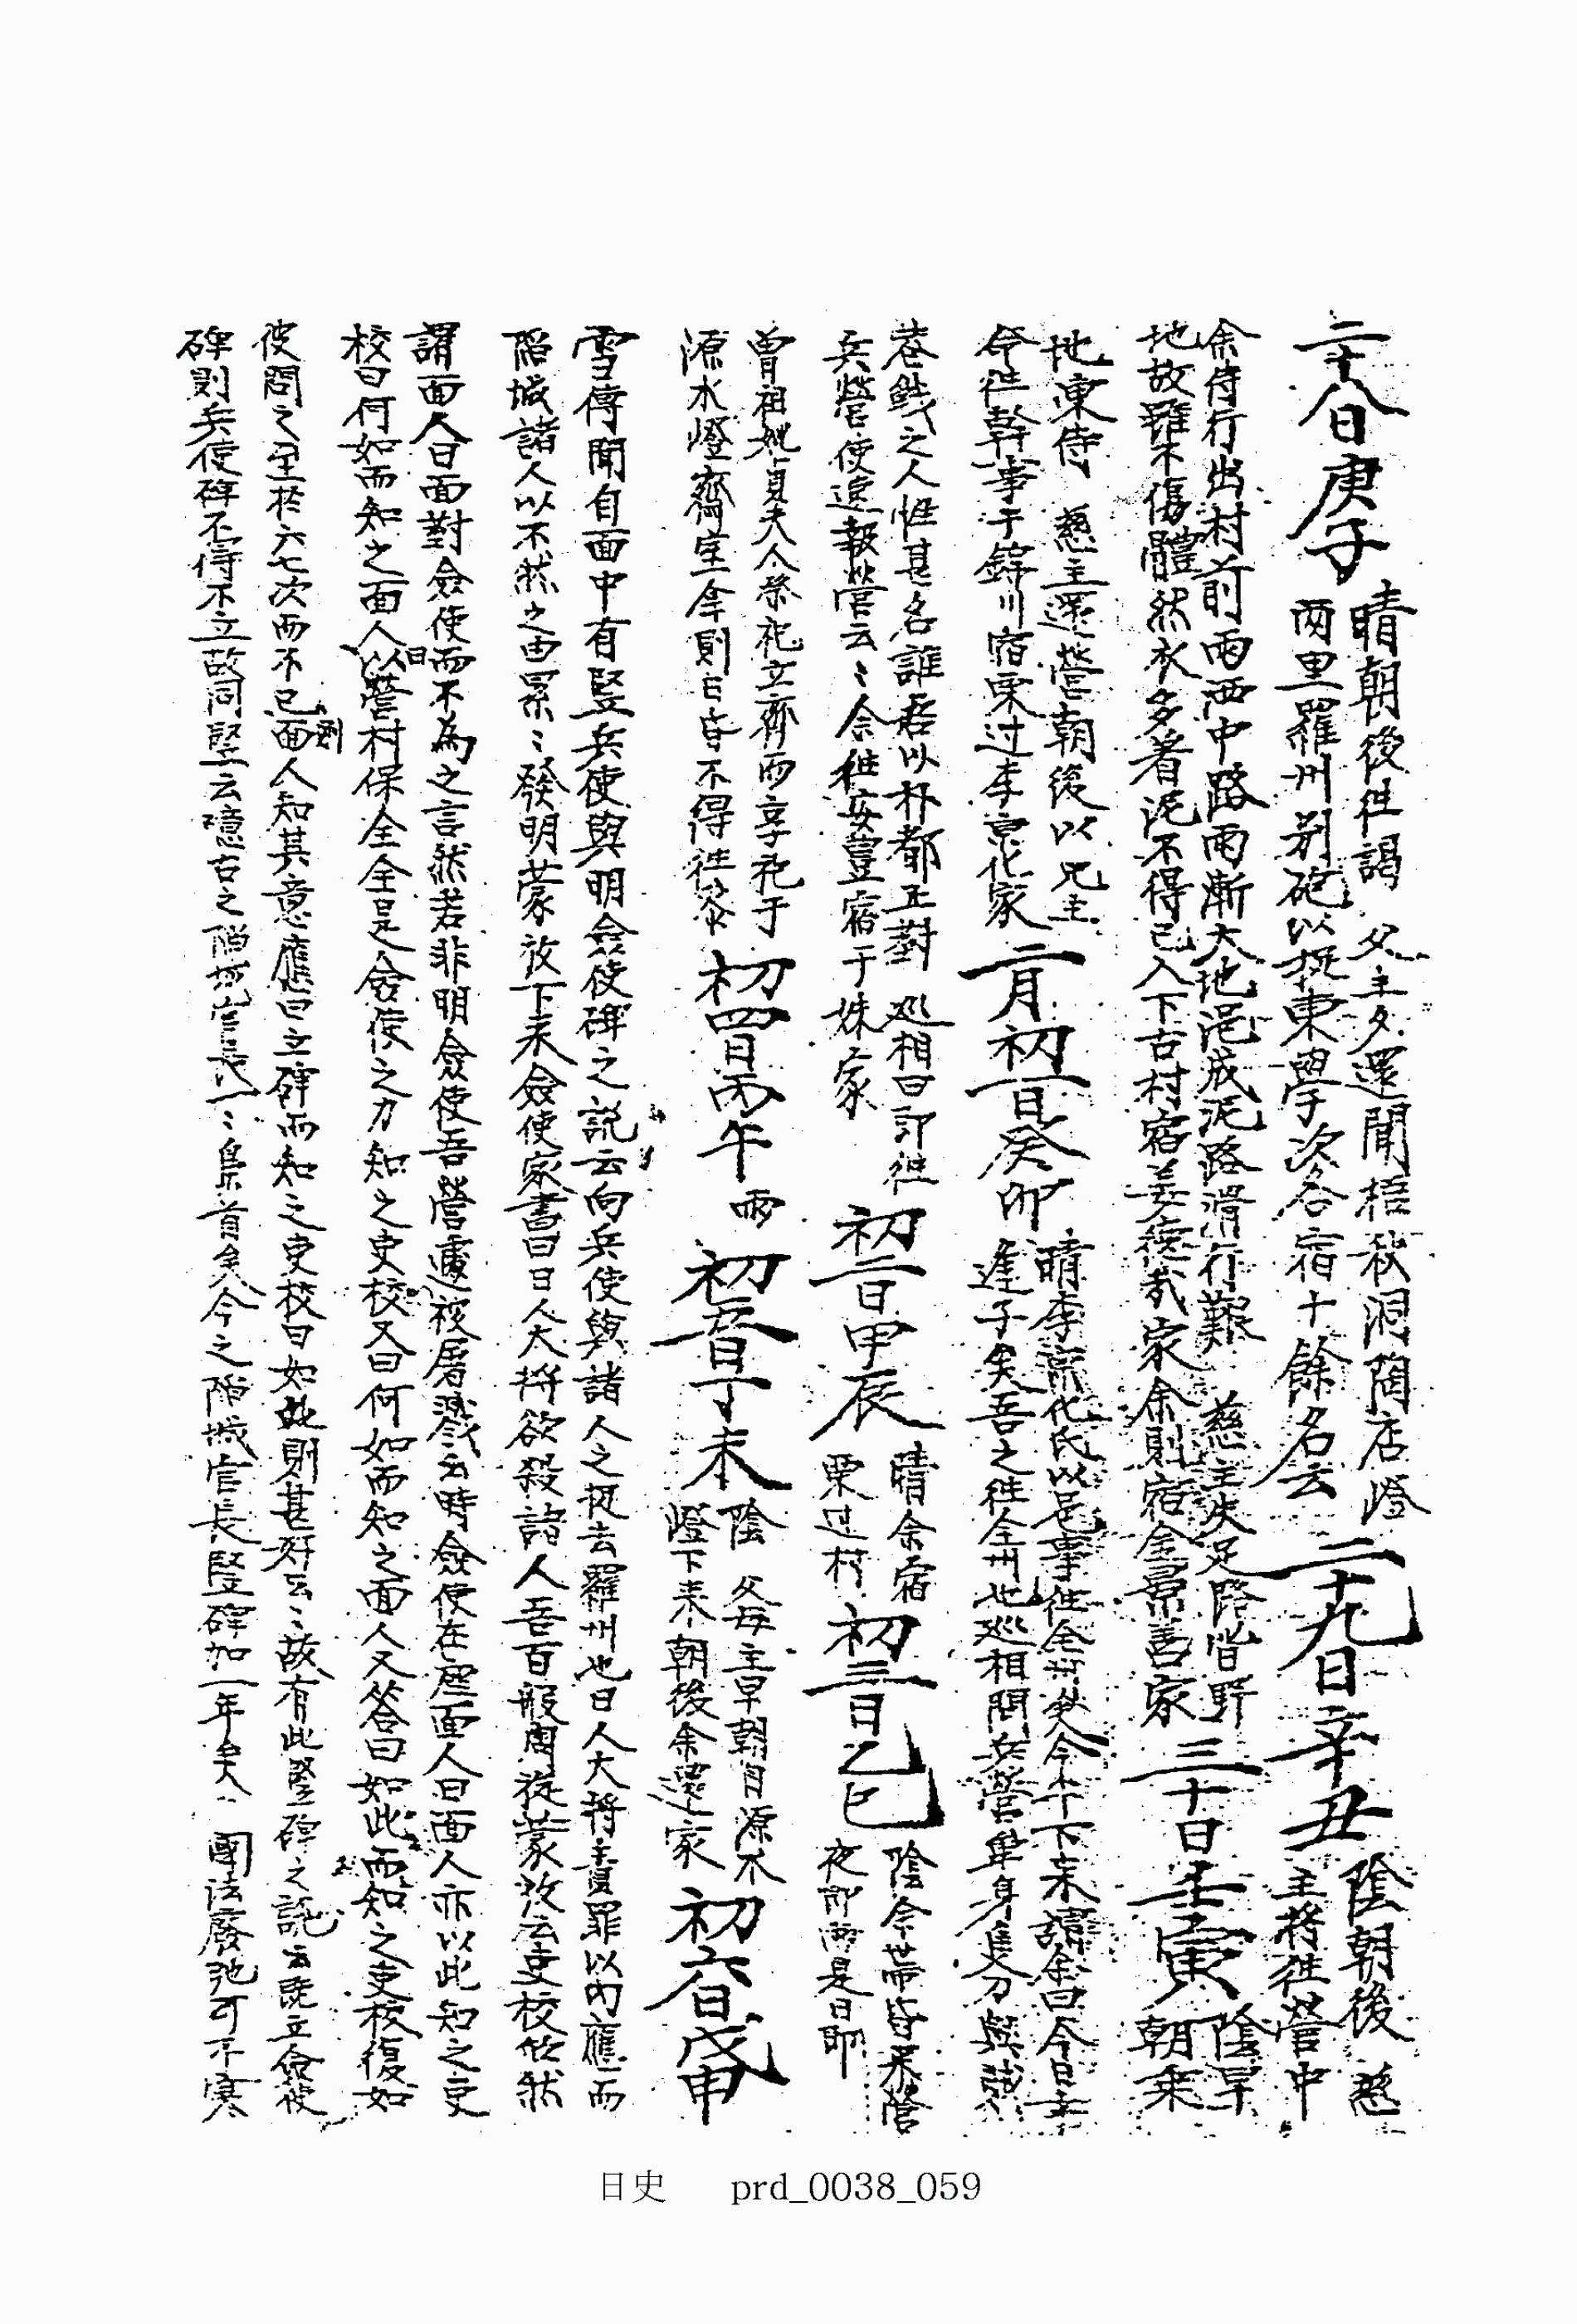 二十八日庚子
晴朝後往謁 父主夕還聞梧秋洞閭店燈
兩里羅州別砲以捉東學次各宿十餘名云
二十九日辛丑
陰朝後 慈
主將往營中
余侍行出村前雨西中路雨漸大地浥成泥路滑行艱 慈主失足路皆野
地故雖不傷體然衣多着泥不得已入下古村宿姜 家余則宿金景善家
三十日壬寅
陰早
朝乘
地凍侍 慈主還營朝後以兄主
命往幹事于鋒川宿栗过李京化家
二月初一日癸卯
晴李京化氏以邑事往全州矣今午下來 余曰今日幸
逢子矣吾之往全州也巡相問兵營單身隻刀與
巷戰之人惟甚名誰吾以朴都正對 巡相曰即往
兵營使速報營云〻余往安豊宿于姝家
初二日甲辰
晴余宿
栗过村
初三日乙巳
陰今 皆呆陰
夜即雨是日即
曾祖妣貞夫人祭祀立齋而享祀于
源水燈齋室余則 皆不得往參
初四日丙午
雨
初五日丁未
陰 父母主早朝自源水
燈下來朝後余還家
初六日戊申
雪傳聞自面中有竪兵使與明僉使碑之說云向兵使與諸人之捉去羅州也日人大將責罪以內應而
陷城諸人以不然之由累〻發明蒙放下來僉使家書曰日人大將欲殺諸人吾百般周旋蒙放云吏校 然
謂面人曰面對僉使而不為之言然若非明僉使吾營處被屠戮云時僉使在座面人曰面人亦以此知之吏
校曰何如而知之面人曰以營村保全全是僉使之力知之吏校又曰何如而知之面人又答曰如此而知之吏校復如
彼問之至於六七次而不已面人知其意應曰立碑而知之吏校曰如此則甚好云〻故有此竪碑之說云旣立僉使
碑則兵使碑不得不立故同竪云噫古之陷城官長〻梟首矣今之陷城官長竪碑加一年矣 國法廢弛可不寒
日史 prd_0038_059